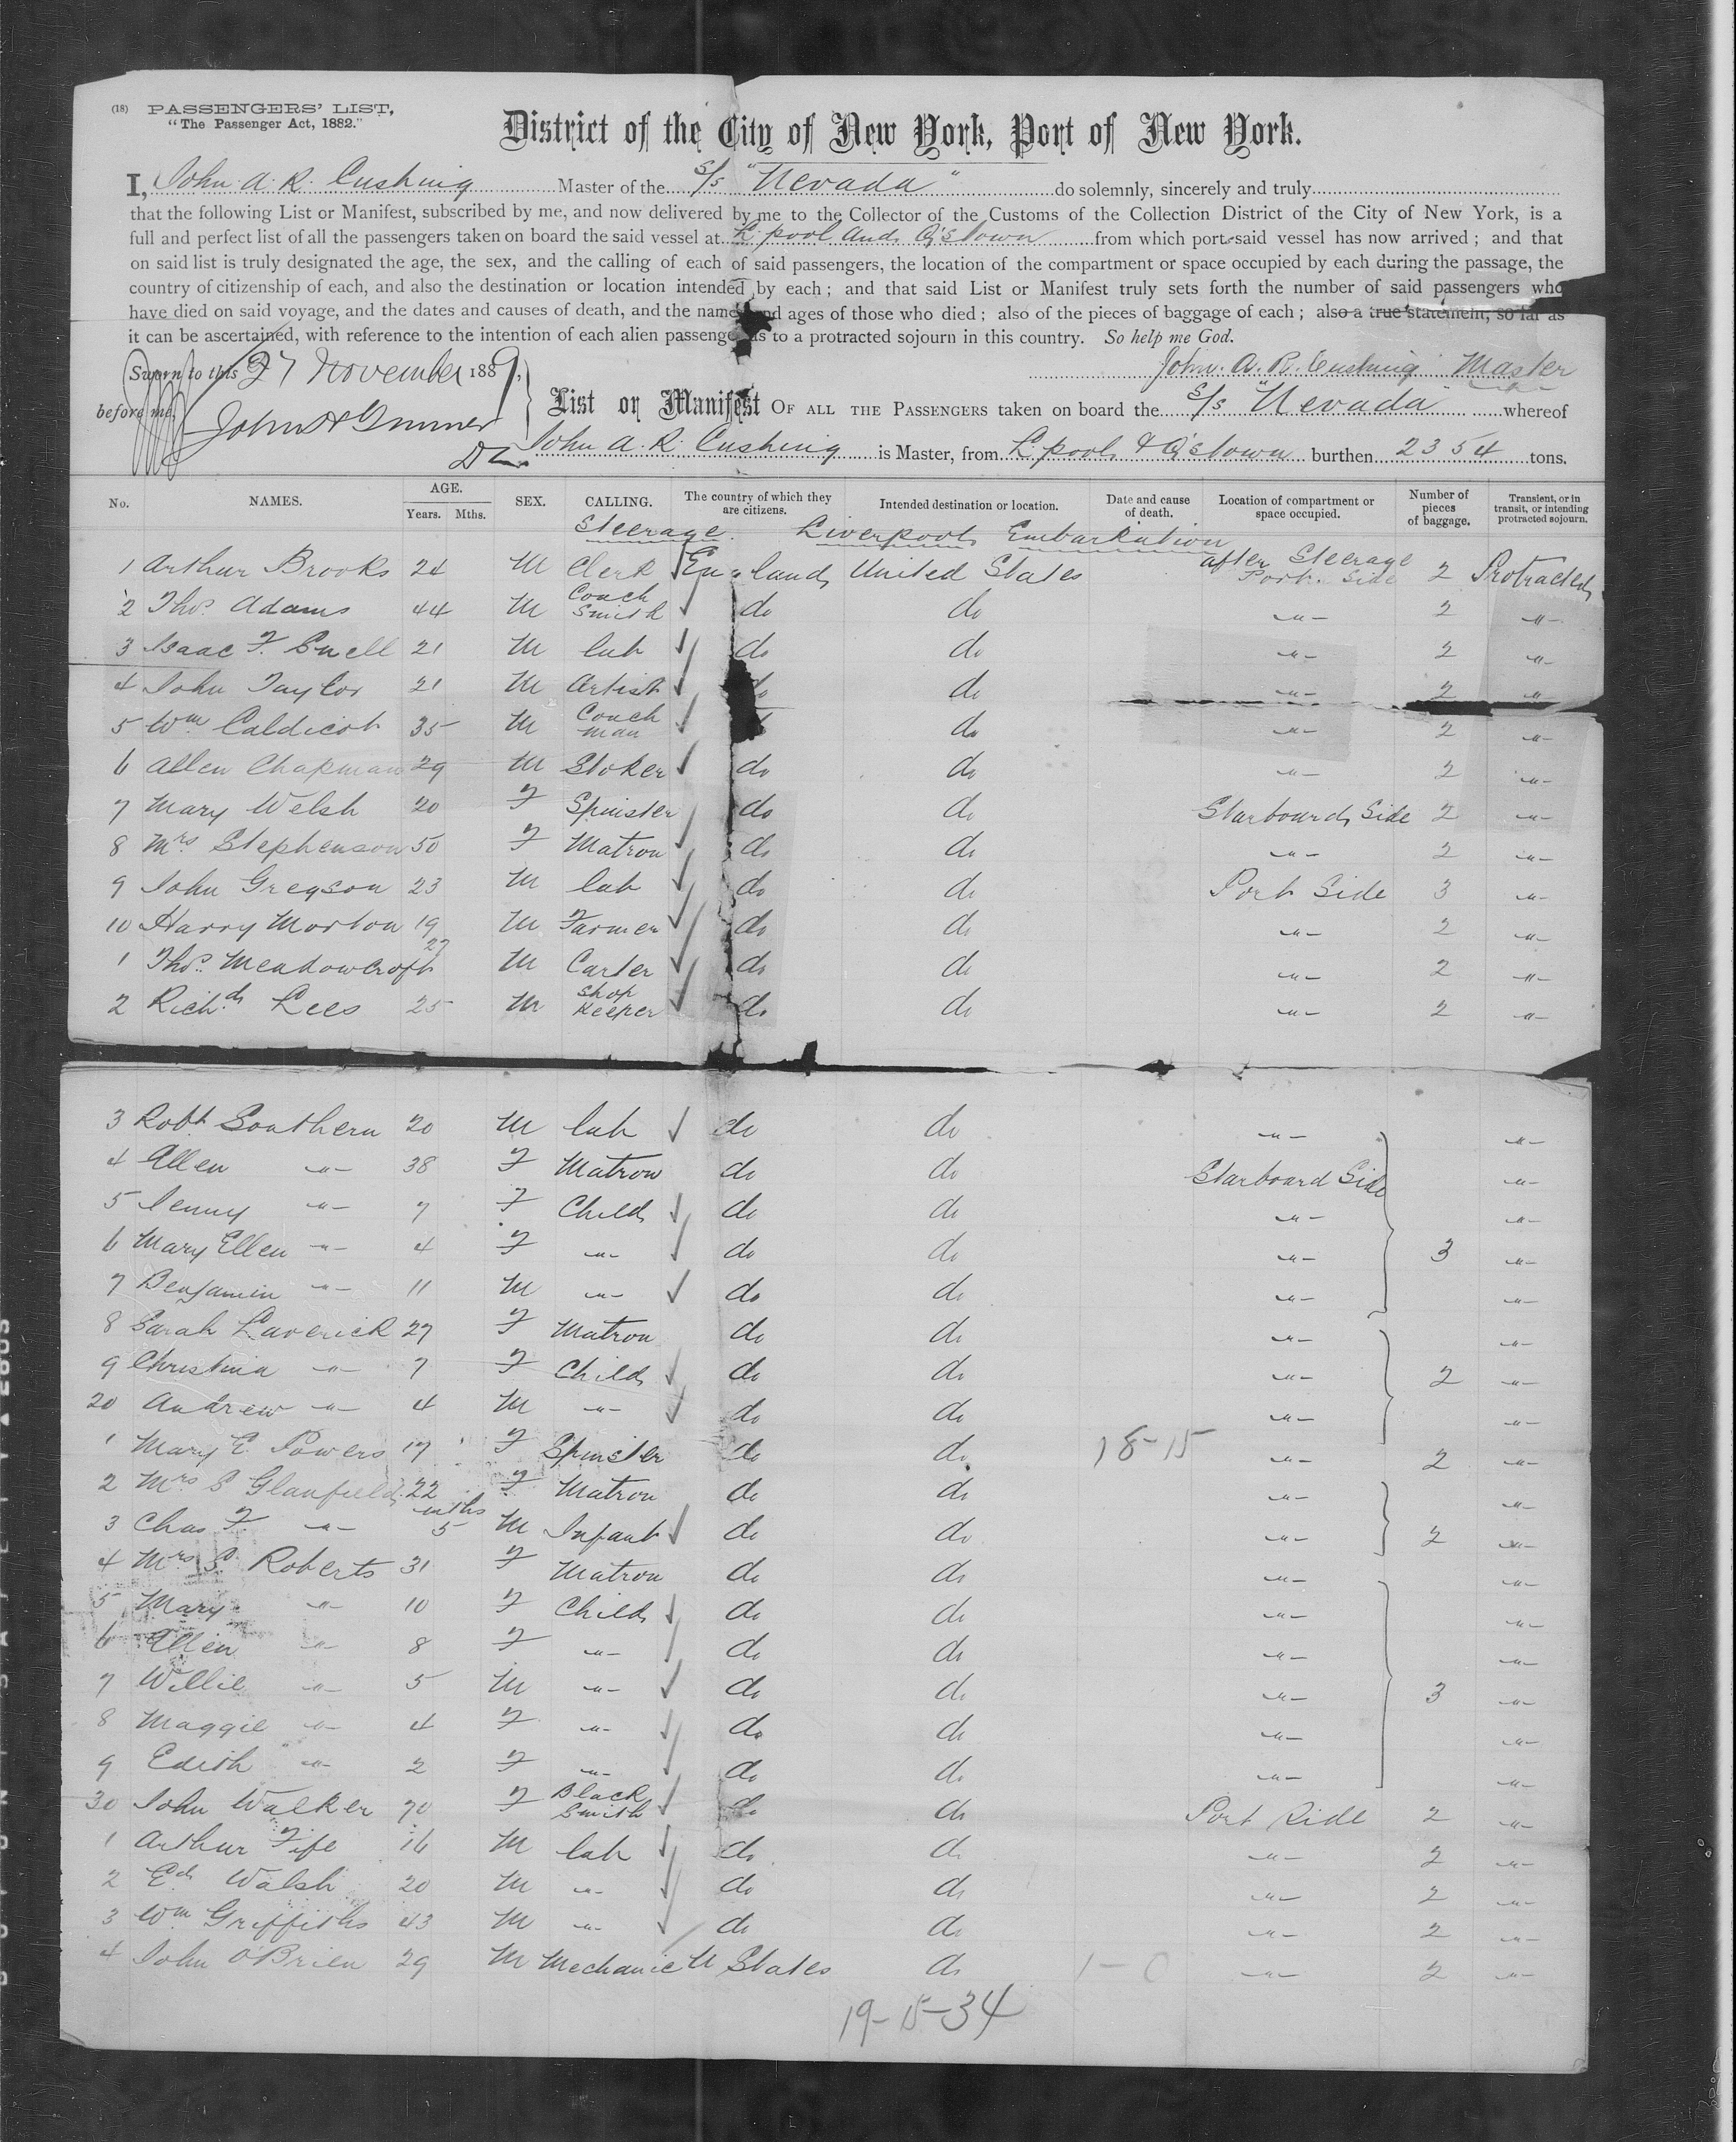 (18) PASSENGERS' LIST,
"The Passenger Act, 1882."
District of the City of New York, Port of New York.
I, John A. R. Cushing Master of the S/s "Nevada" do solemnly, sincerely and truly
that the following List or Manifest, subscribed by me, and now delivered by me to the Collector of the Customs of the Collection District of the City of New York, is a
full and perfect list of all the passengers taken on board the said vessel at L'pool and Q'stown from which port said vessel has now arrived ; and that
on said list is truly designated the age, the sex, and the calling of each of said passengers, the location of the compartment or space occupied by each during the passage, the
country of citizenship of each, and also the destination or location intended by each ; and that said List or Manifest truly sets forth the number of said passengers who
have died on said voyage, and the dates and causes of death, and the names and ages of those who died ; also of the pieces of baggage of each ; also a true statement, so far as
it can be ascertained, with reference to the intention of each alien passenger as to a protracted sojourn in this country. So help me God.
Sworn to this 27 November 1889, John. A. R. Cushing Master
before me,
List or Manifest OF ALL THE PASSENGERS taken on board the S/s "Nevada" whereof
John A. R. Cushing is Master, from L'pool & Q'stown burthen 2354 tons.
No. NAMES. AGE. Years. Mths. SEX. CALLING. The country of which they are citizens. Intended destination or location. Date and cause of death. Location of compartment or space occupied. Number of pieces of baggage. Transient, or in transit, or intending protracted sojourn.
Steerage. Liverpool Embarkation
1 Arthur Brooks 24 M Clerk England United States after Steerage Port Side 2 Protracted
2 Thos. Adams 44 M Coach Smith do do -"- 2 -"-
3 Isaac F. Snell 21 M lab do do -"- 2 -"-
4 John Taylor 21 M Artist do do -"- 2 -"-
5 Wm Caldicot 35 M Coach man do -"- 2 -"-
6 Allen Chapman 29 M Stoker do do -"- 2 -"-
7 Mary Welsh 20 F Spinster do do Starboard Side 2 -"-
8 Mrs Stephenson 50 F Matron do do -"- 2 -"-
9 John Greyson 23 M lab do do Port Side 3 -"-
10 Harry Morton 19 M Farmer do do -"- 2 -"-
1 Thos. Meadowcroft 27 M Carter do do -"- 2 -"-
2 Richd. Lees 25 M Shop Keeper do do -"- 2 -"-
3 Robt Southern 20 M lab do do -"- -"-
4 Ellen -"- 38 F Matron do do Starboard Side -"-
5 Jenny -"- 7 F Child do do -"- -"-
6 Mary Ellen -"- 4 F -"- do do -"- 3 -"-
7 Benjamin -"- 11 M -"- do do -"- -"-
8 Sarah Laverick 27 F Matron do do -"- -"-
9 Christina -"- 7 F Child do do -"- 2 -"-
20 Andrew -"- 4 M -"- do do -"- -"-
1 Mary E. Powers 17 F Spinster do do 18-15 -"- 2 -"-
2 Mrs S Glanfield 22 F Matron do do -"- -"-
3 Chas F -"- mths 5 M Infant do do -"- 2 -"-
4 Mrs S. Roberts 31 F Matron do do -"- -"-
5 Mary -"- 10 F Child do do -"- -"-
6 Ellen -"- 8 F -"- do do -"- -"-
7 Willie -"- 5 M -"- do do -"- 3 -"-
8 Maggie -"- 4 F -"- do do -"- -"-
9 Edith -"- 2 F -"- do do -"- -"-
30 John Walker 70 F Black Smith do do Port Side 2 -"-
1 Arthur Fife 16 M lab do do -"- 2 -"-
2 Ed Walsh 20 M -"- do do -"- 2 -"-
3 Wm Griffiths 43 M -"- do do -"- 2 -"-
4 John O'Brien 29 M Mechanic U States do 1-0 -"- 2 -"-
19-15-34